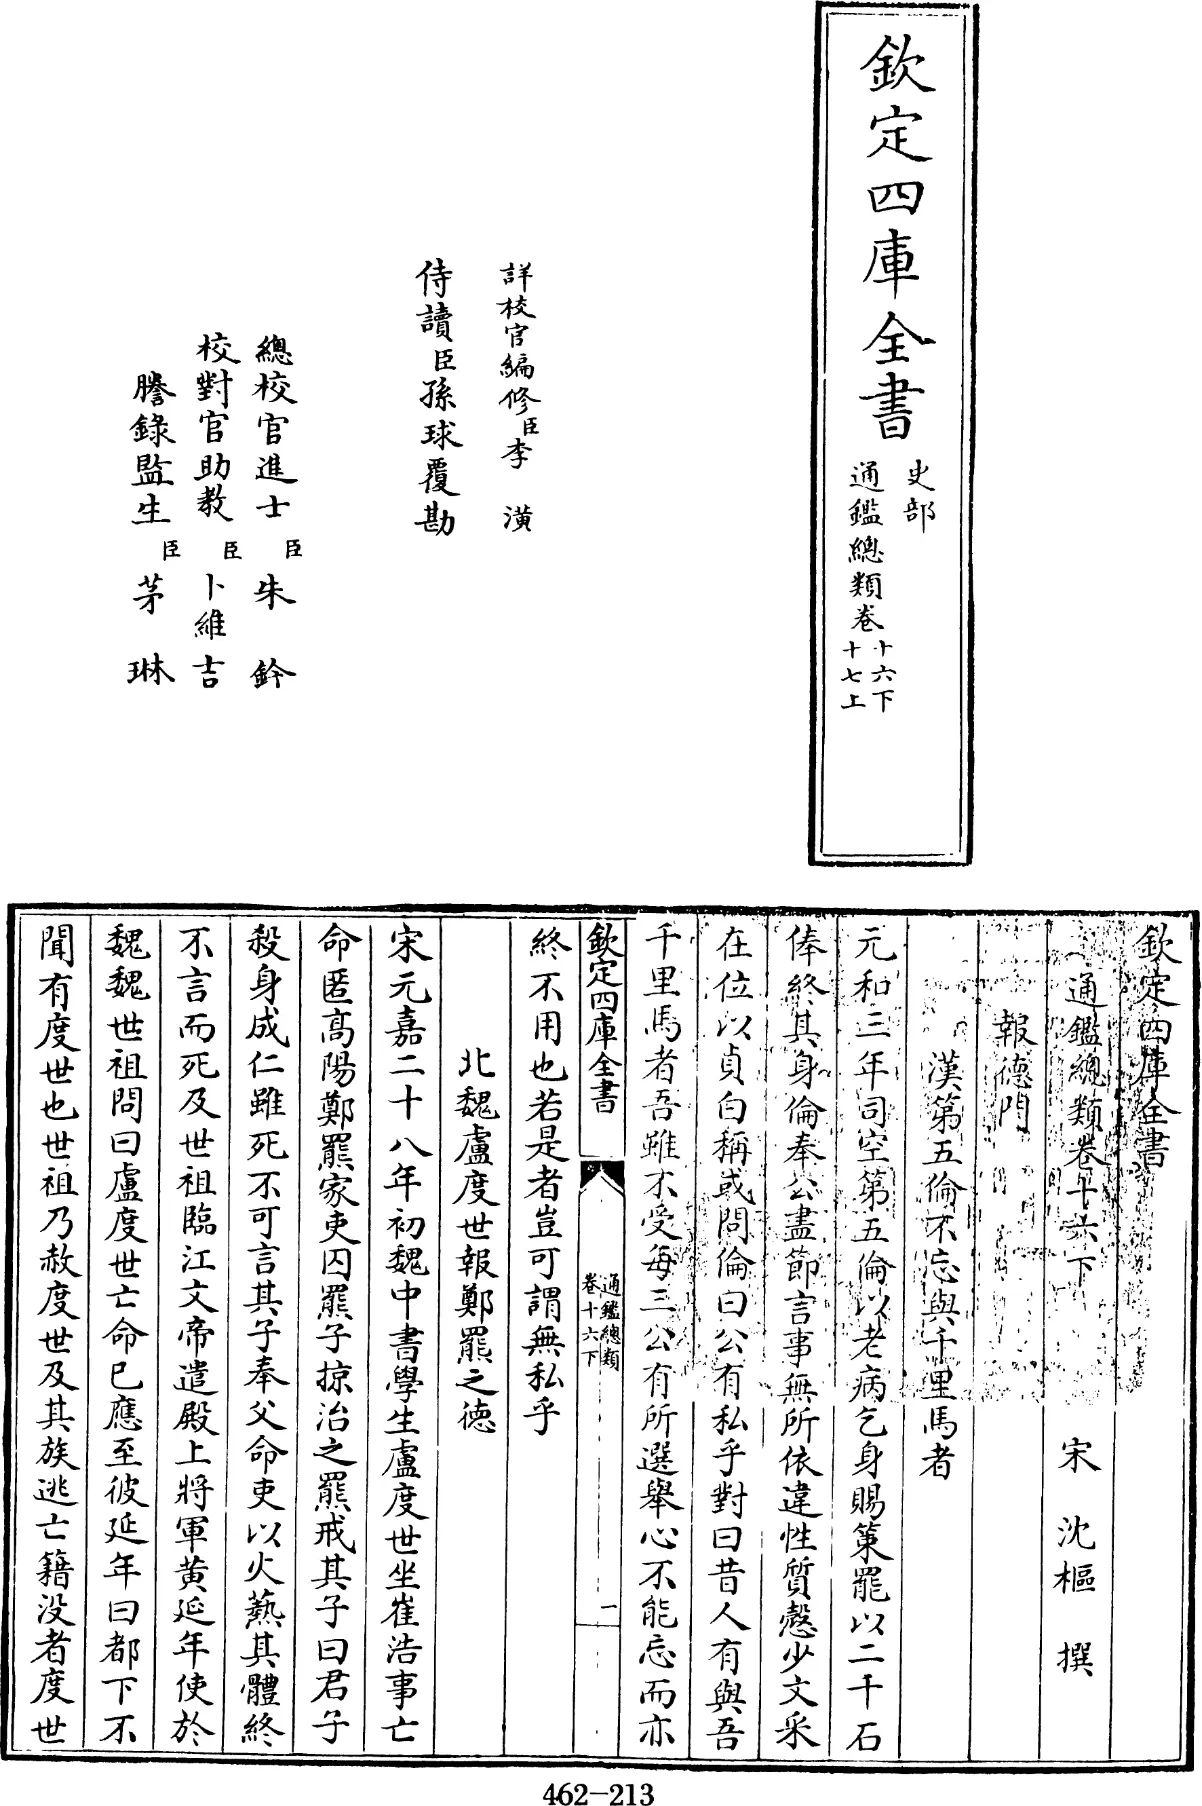 欽定四庫全書
史部
通鑑總類卷
十六下
十七上
詳校官編修臣李潢
侍讀臣孫球覆勘
總校官進士臣朱鈐
校對官助教臣卜維吉
謄錄監生臣茅琳
欽定四庫全書
通鑑總類卷十六下
宋 沈樞 撰
報德門
漢第五倫不忘與千里馬者
元和三年司空第五倫以老病乞身賜策罷以二千石
俸終其身倫奉公盡節言事無所依違性質慤少文采
在位以貞白稱或問倫曰公有私乎對曰昔人有與吾
千里馬者吾雖不受每三公有所選舉心不能忘而亦
欽定四庫全書
通鑑總類
卷十六下
一
終不用也若是者豈可謂無私乎
北魏盧度世報鄭羆之德
宋元嘉二十八年初魏中書學生盧度世坐崔浩事亡
命匿高陽鄭羆家吏囚羆子掠治之羆戒其子曰君子
殺身成仁雖死不可言其子奉父命吏以火爇其體終
不言而死及世祖臨江文帝遣殿上將軍黄延年使於
魏魏世祖問曰盧度世亡命已應至彼延年曰都下不
聞有度世也世祖乃赦度世及其族逃亡籍没者度世
462-213